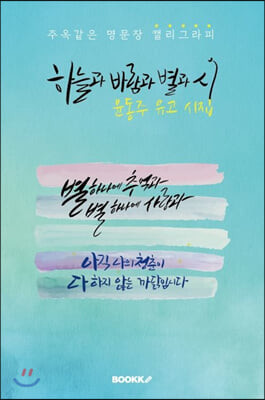 주옥같은 명문장 캘리그라피
하늘과 바람과 별과 시
윤동주 유고 시집
별 하나에 추억과
별 하나에 사랑과
아직 나의 청춘이
다하지 않은 까닭입니다
BOOKK